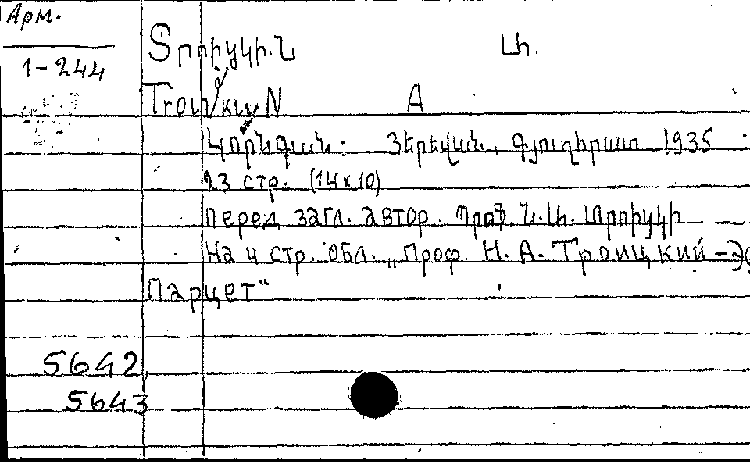 Арм.
1-244
Տրոիցկի. Ն Ա.
Troi կիյ N A
Կորնգան. Յերեվան, Գյուղհրատ 1935
23 стр. (14x10)
Перед загл. автор. Պրոֆ Ն. Ա. Տրոիցկի
На 4 стр. обл. „Проф. Н. А. Троицкий – Э
парцет“
5642
5643